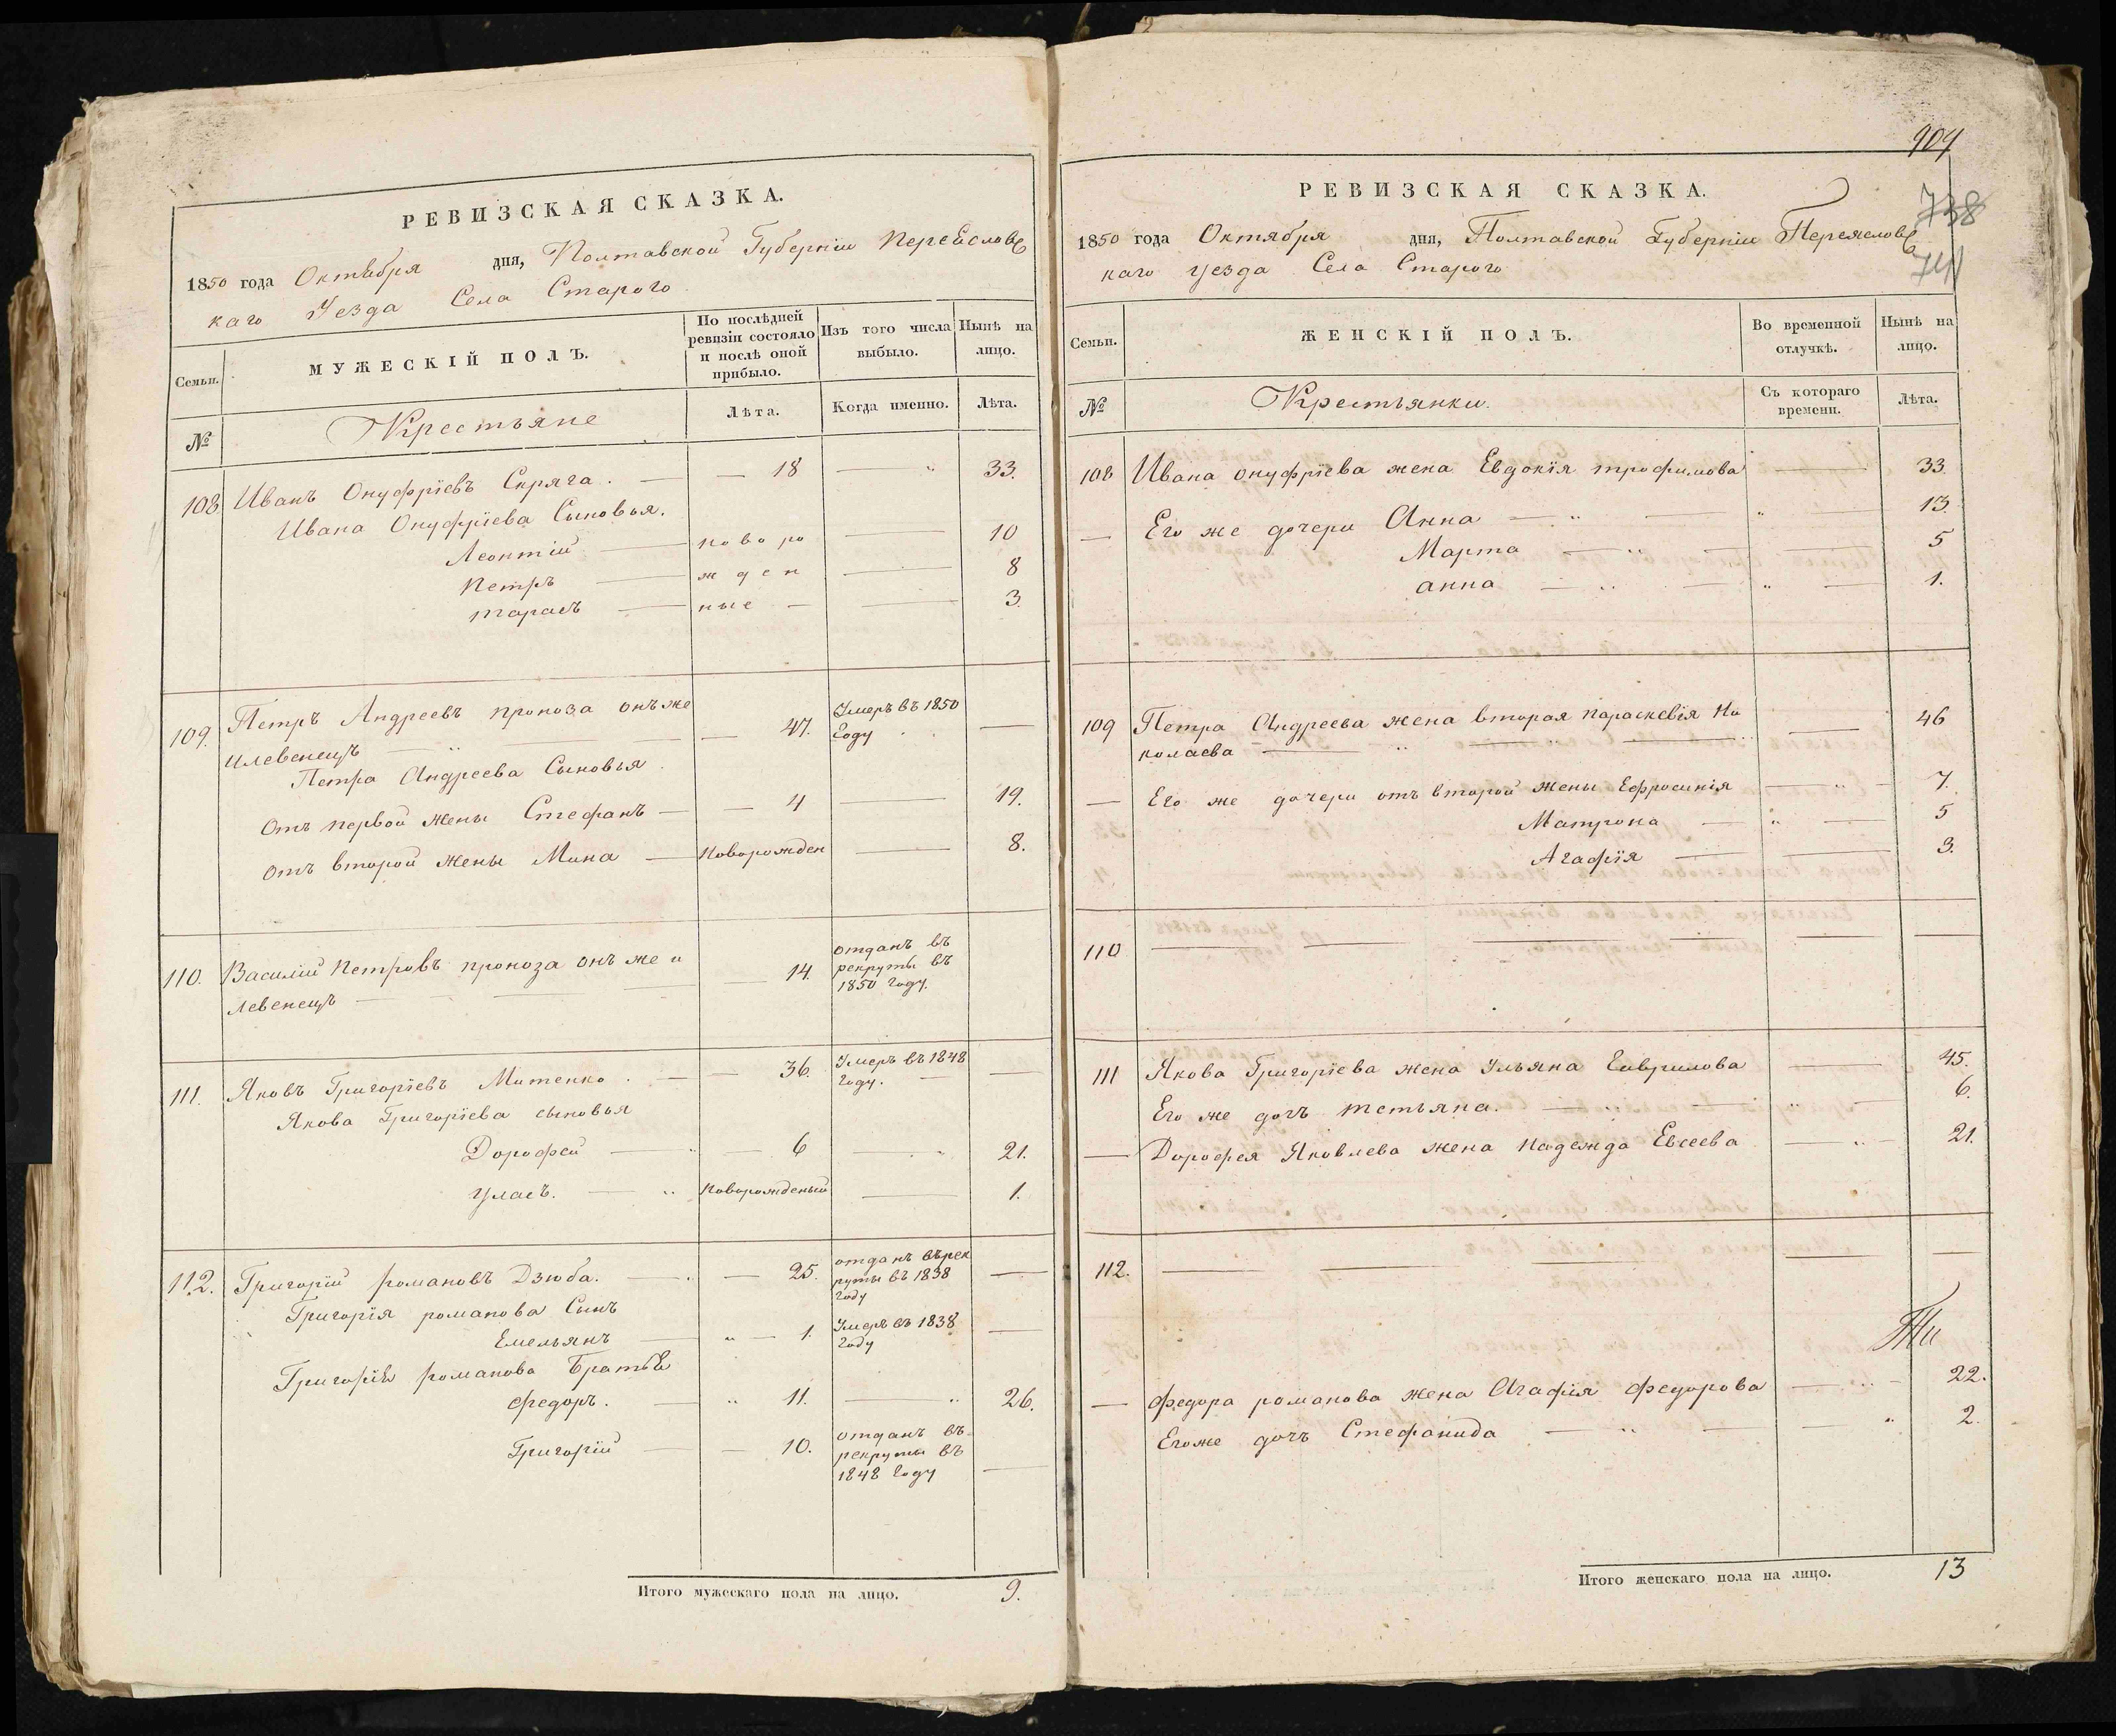 РЕВИЗСКАЯ СКАЗКА.
1850 года Октября дня, Полтавской Губерніи Переяслов
каго Уезда Села Старого
Семьи.
МУЖЕСКІЙ ПОЛЪ.
По послѣдней ревизіи состояло и послѣ оной прибыло.
Изъ того числа выбыло.
Нынѣ на лицо.
№
Крестьяне
Лѣта.
Когда именно.
Лѣта.
108 Иванъ Онуфріевъ Скряга. — 18 — 33.
Ивана Онуфріева Сыновья.
Леонтій — новоро — 10
Петръ — жден — 8
Тарасъ — ные — 3.
109. Петръ Андреевъ проноза онъ же — 47. Умеръ въ 1850 Году —
илевенецъ
Петра Андреева Сыновья
Отъ первой жены Стефанъ — 4 — 19.
Отъ второй жены Мина — Новорожден — 8.
110. Василій Петровъ проноза онъ же и — 14. отданъ въ рекруты въ 1850 году.
левенецъ —
111. Яковъ Григоріевъ Митенко. — 36. Умеръ въ 1848 Году. —
Якова Григоріева сыновья
Дорофей — 6 — 21.
Уласъ. — Новорожденый — 1.
112. Григорій романовъ Дзюба. — 25. отданъ въ рек руты въ 1838 году —
Григорія романова Сынъ
Емельянъ — 1. Умеръ въ 1838 Году —
Григорія романова Братья
Федоръ. — 11. — 26.
Григорій — 10. отданъ въ рекруты въ 1848 Году —
Итого мужескаго пола на лицо. 9.
904
738
РЕВИЗСКАЯ СКАЗКА.
1850 года Октября дня, Полтавской Губерніи Переяслов
каго уезда Села Старого
Семьи.
ЖЕНСКІЙ ПОЛЪ.
Во временной отлучкѣ.
Нынѣ на лицо.
№
Крестьянки.
Съ котораго времени.
Лѣта.
108 Ивана онуфріева жена Евдокія трофимова — 33.
— Его же дочери Анна — 13.
Марта — 5
анна — 1.
109 Петра Андреева жена вторая параскевія Ни — 46
колаева —
— Его же дочери отъ второй жены Ефросинія — 7.
Матрона — 5
Агафія — 3.
110 —
111 Якова Григоріева жена Ульяна Гаврилова — 45.
Его же дочь татьяна. — 6.
— Дорофея Яковлева жена Надежда Евсеева — 21.
112. —
— Федора романова жена Агафія федорова — 22.
Егоже дочь Стефанида — 2.
Итого женскаго пола на лицо. 13